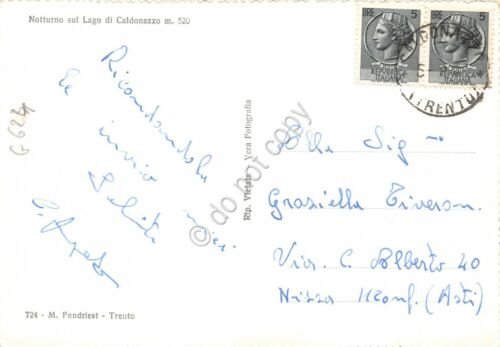 Notturno sul Lago di Caldonazzo m. 520
LIRE 5
REPUBBLICA
ITALIANA
LIRE 5
REPUBBLICA
ITALIANA
(TRENTO)
G 624
Ricordandola
Le invio
saluti
Alla Sig
Graziella
Via C. Alberto 40
Nizza Monf. (Asti)
Rip. Vietata - Vera Fotografia
do not copy
724 - M. Fondriest - Trento